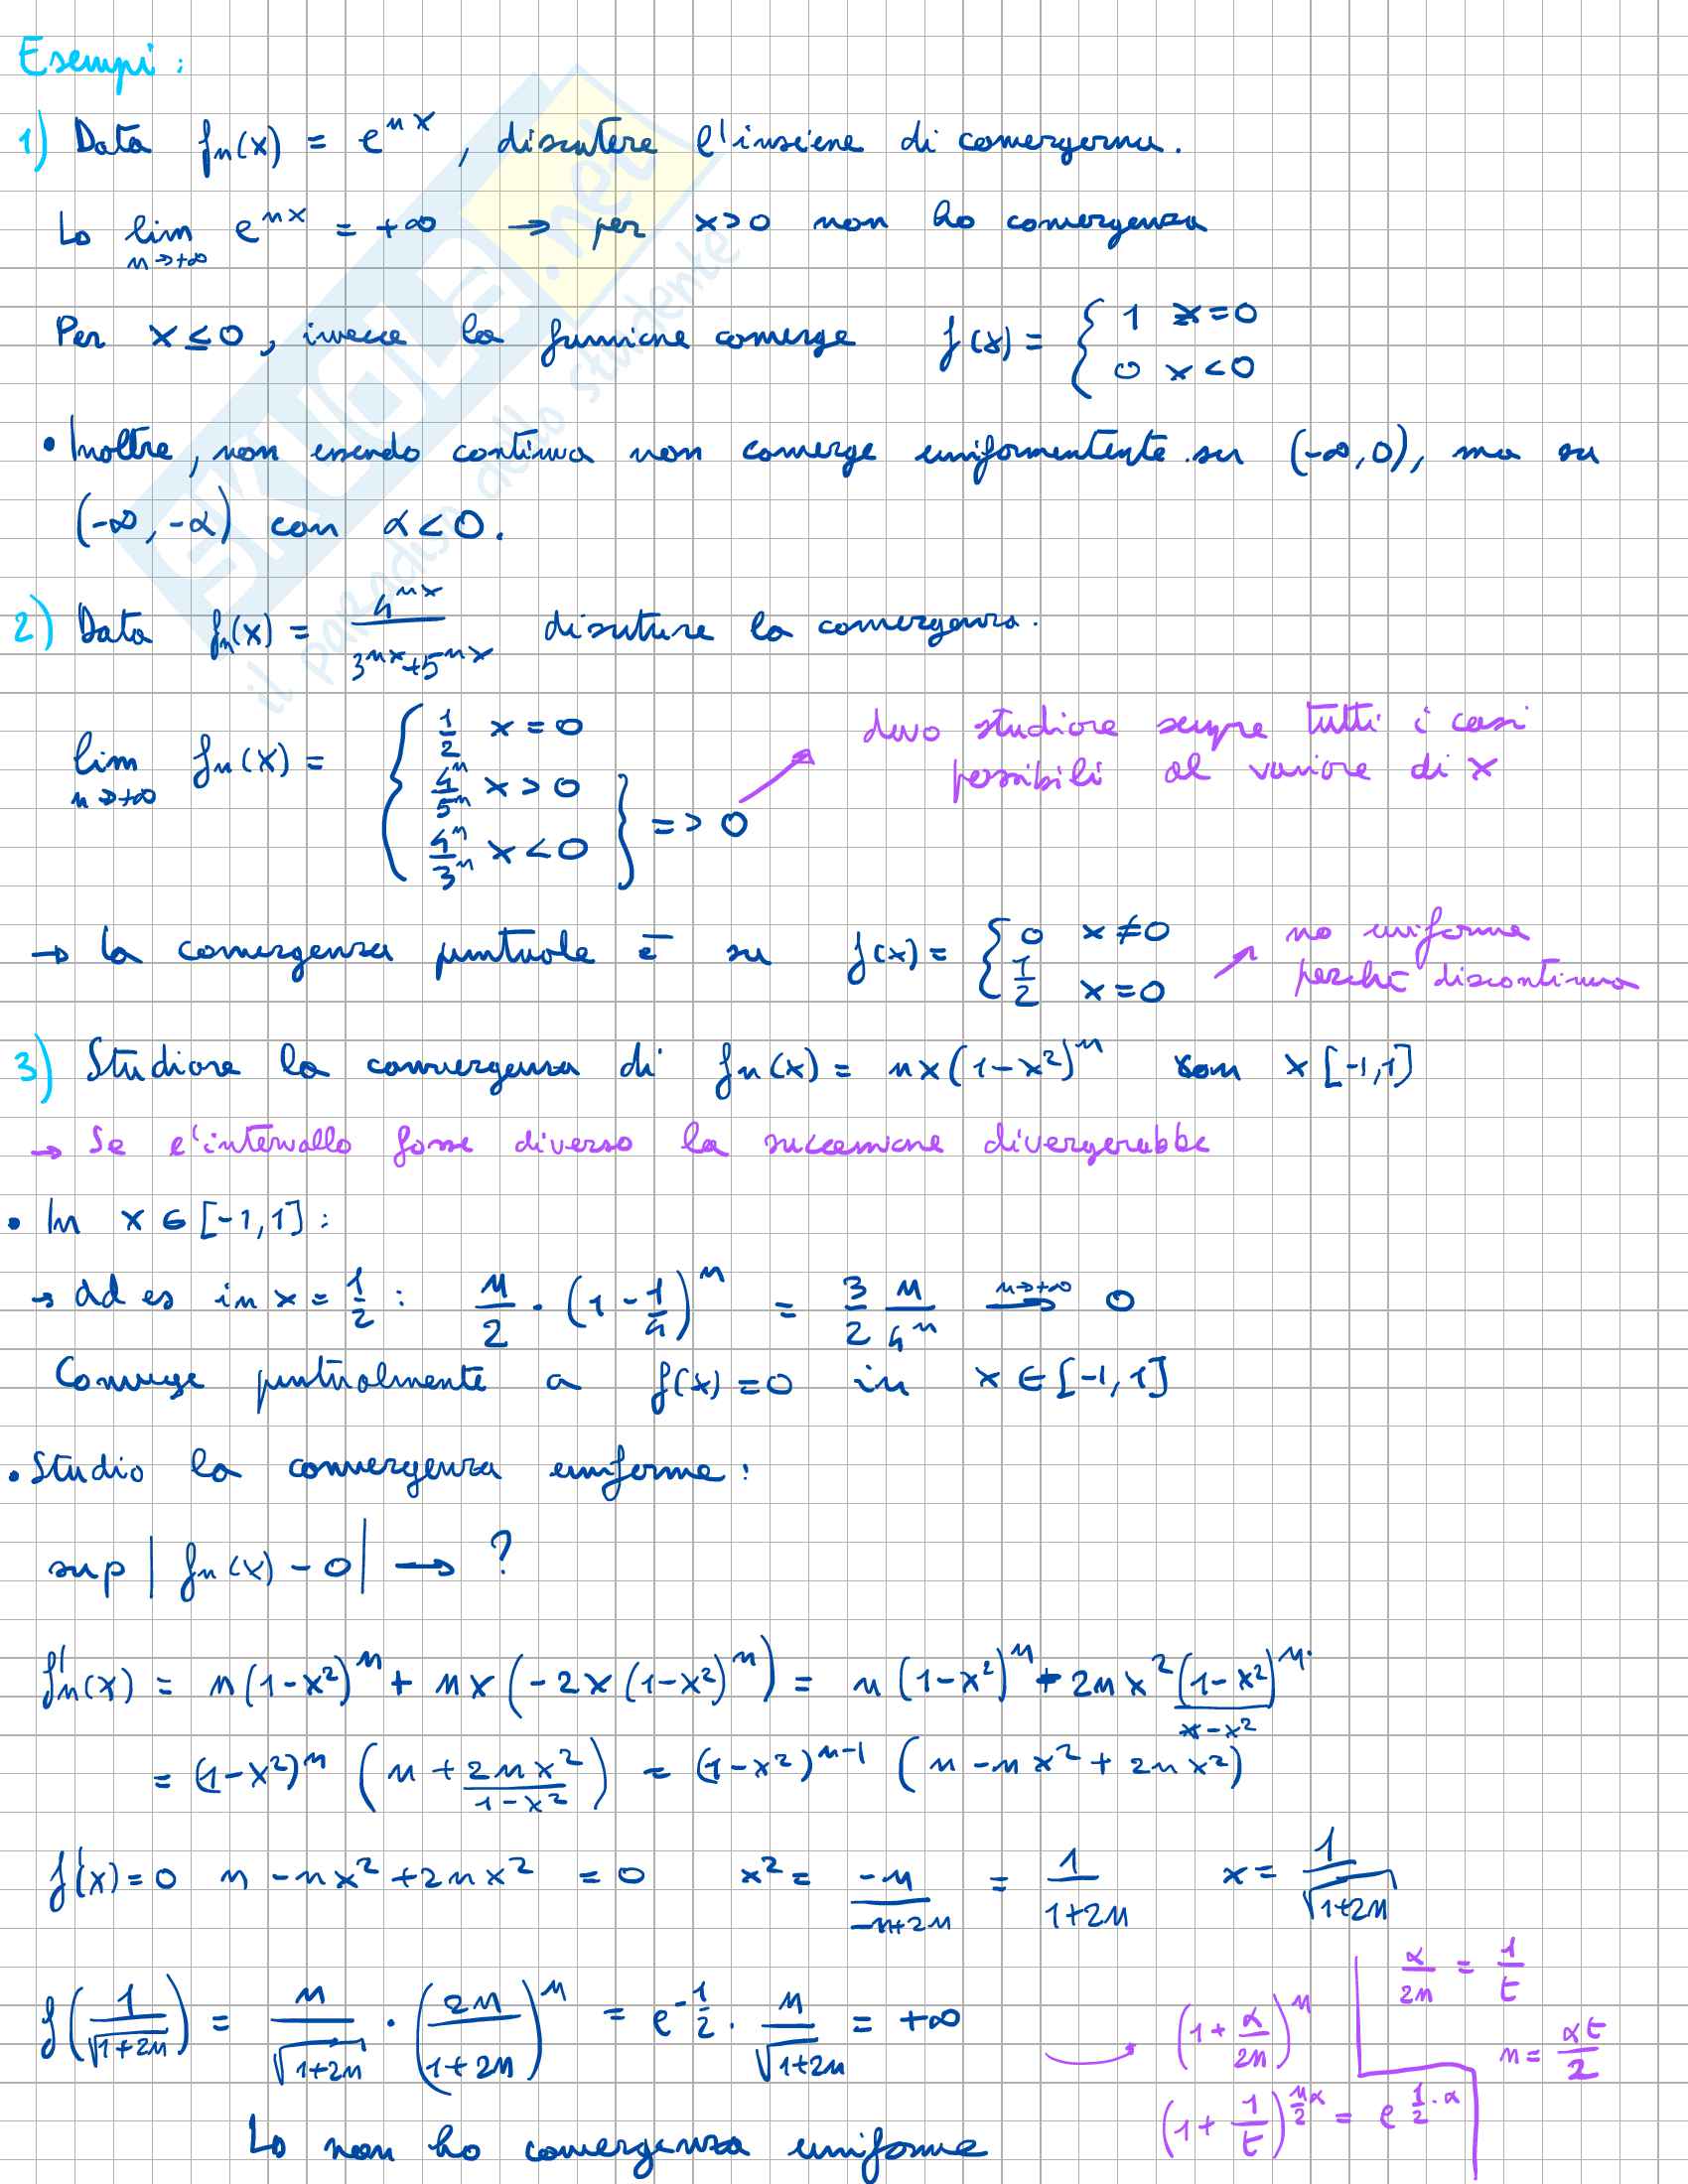 Esempi:
1) Data fn(x) = e^nx, discutere l'insieme di convergenza.
Lo lim n→+∞ e^nx = +∞ → per x>0 non ho convergenza
Per x≤0, invece la funzione converge f(x) = { 1 x=0
0 x<0
• Inoltre, non essendo continua non converge uniformentente su (-∞,0), ma su
(-∞,-α) con α<0.
2) Data fn(x) = 4^nx / 3^nx+5^nx discutere la convergenza.
lim n→+∞ fn(x) = { 1/2 x=0
4^n/5^n x>0
4^n/3^n x<0 } => 0
devo studiare sempre tutti i casi
possibili al variare di x
→ la convergenza puntuale è su f(x) = { 0 x≠0
1/2 x=0
no uniforme
perchè discontinua
3) Studiare la convergenza di fn(x) = nx(1-x²)^n con x [-1,1]
→ Se l'intervallo fosse diverso la successione divergerebbe
• In x∈[-1,1]:
→ ad es in x = 1/2 : n/2 · (1-1/4)^n = 3/2 n/4^n n→+∞ → 0
Converge puntualmente a f(x)=0 in x∈[-1,1]
• Studio la convergenza uniforme:
sup | fn(x) - 0 | → ?
f'n(x) = n(1-x²)^n + nx(-2x(1-x²)^n) = n(1-x²)^n + 2nx² (1-x²)^n / x-x²
= (1-x²)^n (n + 2nx²/1-x²) = (1-x²)^n-1 (n - nx² + 2nx²)
f'(x)=0 n - nx² + 2nx² = 0 x² = -n/-n+2n = 1/1+2n x = 1/√1+2n
f(1/√1+2n) = n/√1+2n · (2n/1+2n)^n = e^-1/2 · n/√1+2n = +∞
(1+α/2n)^n
α/2n = 1/t
n = αt/2
(1+1/t)^n/2α = e^1/2·α
Lo non ho convergenza uniforme
SKUOLA.net
il paradiso dello studente